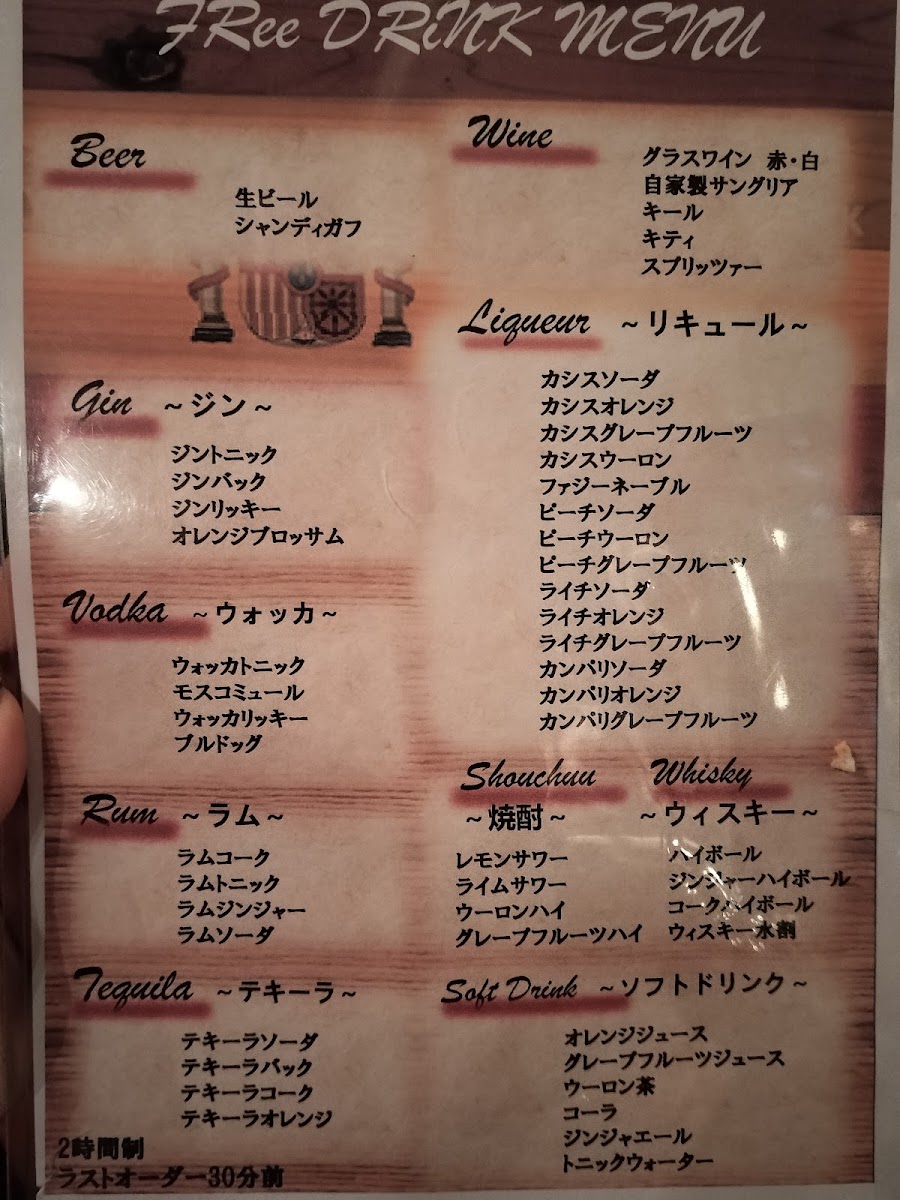 FRee DRiNK MENU
Beer
生ビール
シャンディガフ
Gin ～ジン～
ジントニック
ジンバック
ジンリッキー
オレンジブロッサム
Vodka ～ウォッカ～
ウォッカトニック
モスコミュール
ウォッカリッキー
ブルドッグ
Rum ～ラム～
ラムコーク
ラムトニック
ラムジンジャー
ラムソーダ
Tequila ～テキーラ～
テキーラソーダ
テキーラバック
テキーラコーク
テキーラオレンジ
2時間制
ラストオーダー30分前
Wine
グラスワイン 赤・白
自家製サングリア
キール
キティ
スプリッツァー
Liqueur ～リキュール～
カシスソーダ
カシスオレンジ
カシスグレープフルーツ
カシスウーロン
ファジーネーブル
ピーチソーダ
ピーチウーロン
ピーチグレープフルーツ
ライチソーダ
ライチオレンジ
ライチグレープフルーツ
カンパリソーダ
カンパリオレンジ
カンパリグレープフルーツ
Shouchuu
～焼酎～
レモンサワー
ライムサワー
ウーロンハイ
グレープフルーツハイ
Whisky
～ウィスキー～
ハイボール
ジンジャーハイボール
コークハイボール
ウィスキー水割
Soft Drink ～ソフトドリンク～
オレンジジュース
グレープフルーツジュース
ウーロン茶
コーラ
ジンジャエール
トニックウォーター